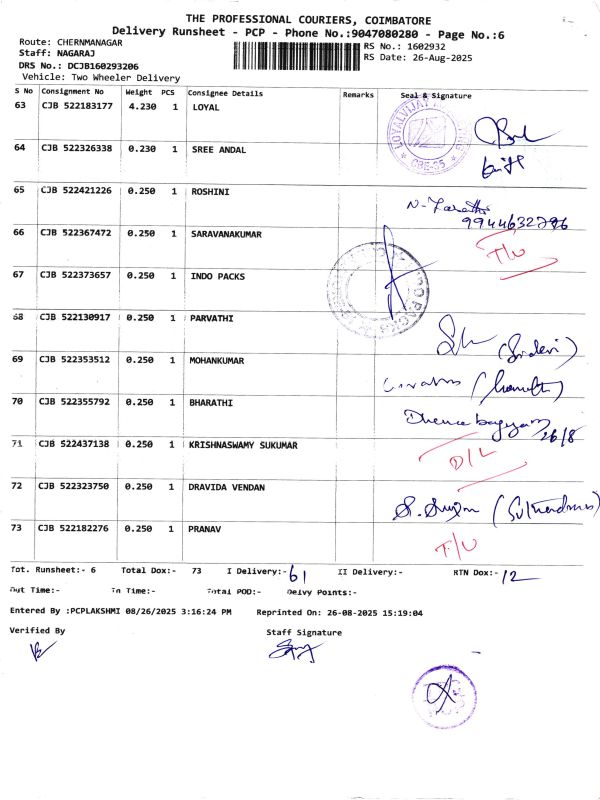 THE PROFESSIONAL COURIERS, COIMBATORE
Delivery Runsheet - PCP - Phone No.:9047080280 - Page No.:6
Route: CHERNMANAGAR
Staff: NAGARAJ
RS No.: 1602932
DRS No.: DCJB160293206
RS Date: 26-Aug-2025
Vehicle: Two Wheeler Delivery
S No Consignment No Weight PCS Consignee Details Remarks Seal & Signature
63 CJB 522183177 4.230 1 LOYAL
CBE-35
64 CJB 522326338 0.230 1 SREE ANDAL
65 CJB 522421226 0.250 1 ROSHINI
9944632796
66 CJB 522367472 0.250 1 SARAVANAKUMAR T/U
67 CJB 522373657 0.250 1 INDO PACKS
68 CJB 522130917 0.250 1 PARVATHI
(Sridevi)
69 CJB 522353512 0.250 1 MOHANKUMAR
70 CJB 522355792 0.250 1 BHARATHI
26/8
71 CJB 522437138 0.250 1 KRISHNASWAMY SUKUMAR D/L
72 CJB 522323750 0.250 1 DRAVIDA VENDAN
73 CJB 522182276 0.250 1 PRANAV T/U
Tot. Runsheet:- 6 Total Dox:- 73 I Delivery:- 61 II Delivery:- RTN Dox:- 12
Out Time:- In Time:- Total POD:- Delvy Points:-
Entered By :PCPLAKSHMI 08/26/2025 3:16:24 PM Reprinted On: 26-08-2025 15:19:04
Verified By Staff Signature